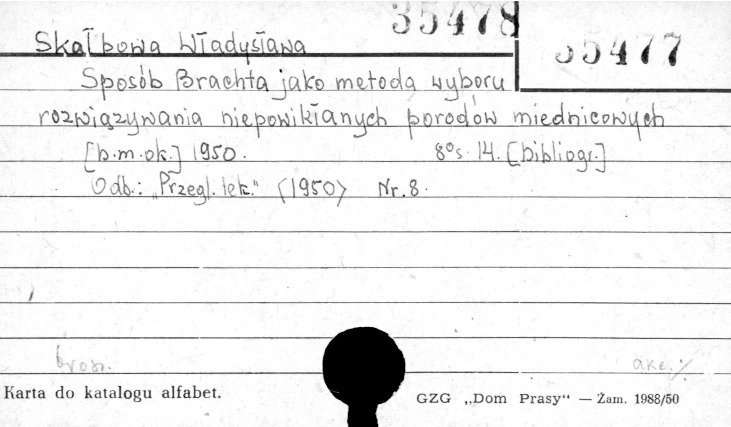 35478
Skałbowa Władysława
35477
Sposób Brachta jako metoda wyboru
rozwiązywania niepowikłanych porodów miednicowych
[b.m.ok.] 1950. 8° s. 14. [bibliogr.]
Odb.: „Przegl. lek." <1950> Nr. 8.
brosz.
akc. %
Karta do katalogu alfabet.
GZG „Dom Prasy“ — Żam. 1988/50